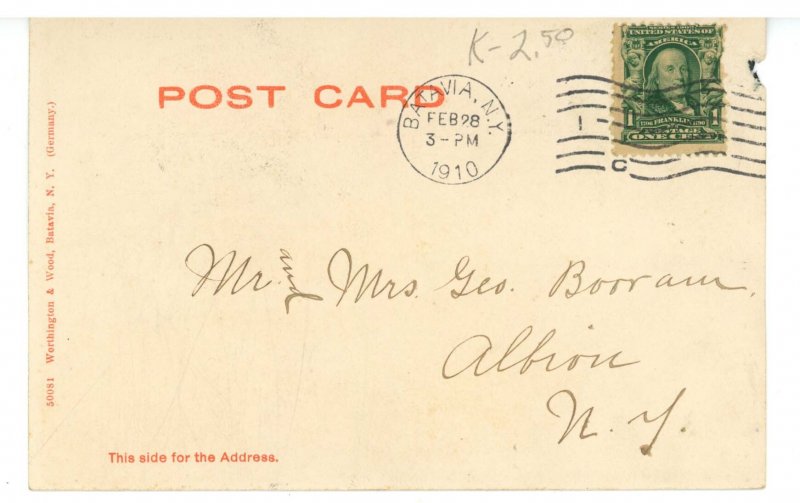 K-2.50
POST CARD
BATAVIA, N.Y.
FEB 28
3-PM
1910
1
C
UNITED STATES OF
AMERICA
1 1
1706 FRANKLIN 1790
POSTAGE
ONE CENT
50081 Worthington & Wood, Batavia, N. Y. (Germany.)
Mr. and Mrs. Geo. Booram.
Albion
N. Y.
This side for the Address.